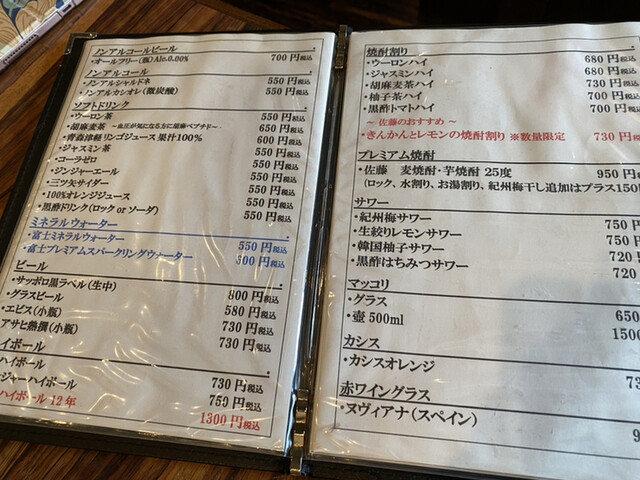 ノンアルコールビール
・オールフリー(瓶)Alc.0.00% 700円税込
ノンアルコール
・ノンアルシャルドネ 550円税込
・ノンアルカシオレ(微炭酸) 550円税込
ソフトドリンク
・ウーロン茶 550円税込
・胡麻麦茶 ～血圧が気になる方に胡麻ペプチド～ 650円税込
・青森津軽リンゴジュース果汁100% 600円税込
・ジャスミン茶 550円税込
・コーラゼロ 550円税込
・ジンジャーエール 550円税込
・三ツ矢サイダー 550円税込
・100%オレンジジュース 550円税込
・黒酢ドリンク(ロック or ソーダ) 550円税込
ミネラルウォーター
・富士ミネラルウォーター 550円税込
・富士プレミアムスパークリングウォーター 500円税込
ビール
・サッポロ黒ラベル(生中) 800円税込
・グラスビール 580円税込
・エビス(小瓶) 730円税込
アサヒ熟撰(小瓶) 730円税込
イボール
ハイボール 730円税込
ジャーハイボール 750円税込
ハイボール 12年 1300円税込
焼酎割り
・ウーロンハイ 680円税込
・ジャスミンハイ 680円税込
・胡麻麦茶ハイ 730円税込
・柚子茶ハイ 700円税込
・黒酢トマトハイ 700円税込
～ 佐藤のおすすめ ～
・きんかんとレモンの焼酎割り ※数量限定 730円税込
プレミアム焼酎
・佐藤 麦焼酎・芋焼酎 25度 950円
(ロック、水割り、お湯割り、紀州梅干し追加はプラス150
サワー
・紀州梅サワー 750円
・生絞りレモンサワー 750円
・韓国柚子サワー 720
・黒酢はちみつサワー 720
マッコリ
・グラス 650
・壺 500ml 1500
カシス
・カシスオレンジ 73
赤ワイングラス
・ヌヴィアナ(スペイン) 9